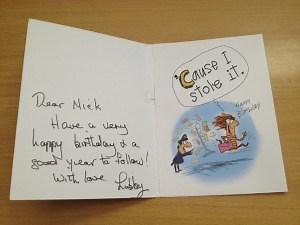 Dear Nick
Have a very
happy birthday & a
good year to follow!
With love Libby
'Cause I
stole it.
HAPPY
BIRTHDAY